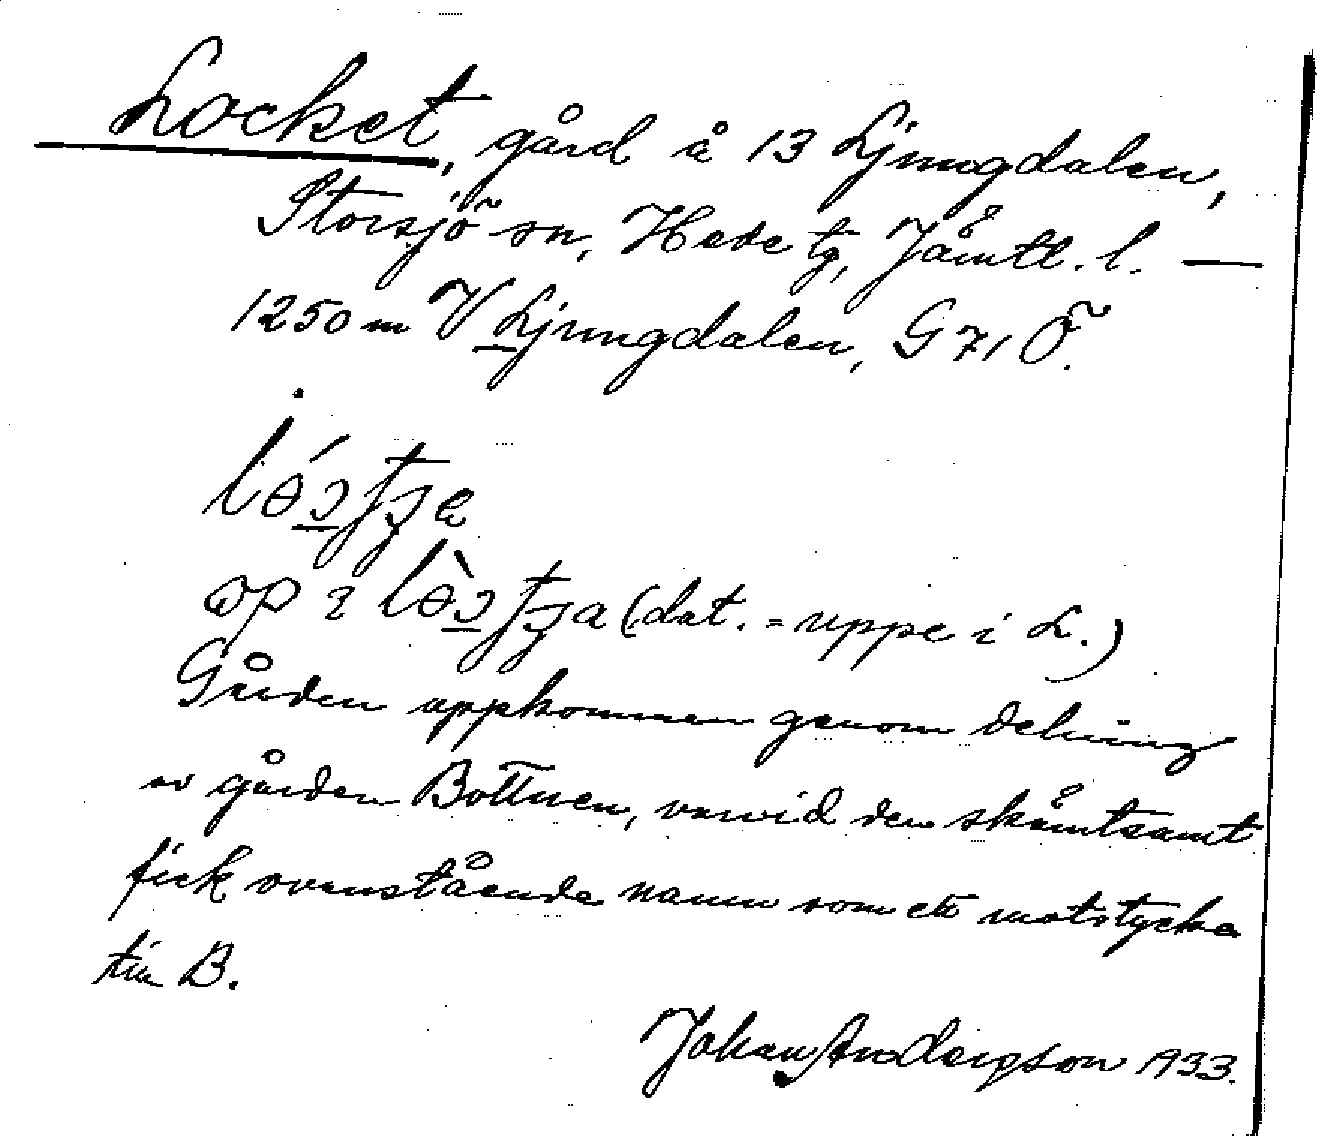 Locket, gård å 13 Ljungdalen,
Storsjö sn, Hede tg, Jämtl. l. —
1250 m V Ljungdalen, G 71 Ö.
(dat. = uppe i L.)
Gården uppkommen genom delning
av gården Bottnen, varvid den skämtsamt
fick ovanstående namn som ett motstycke
till B.
Johan Andersson 1933.